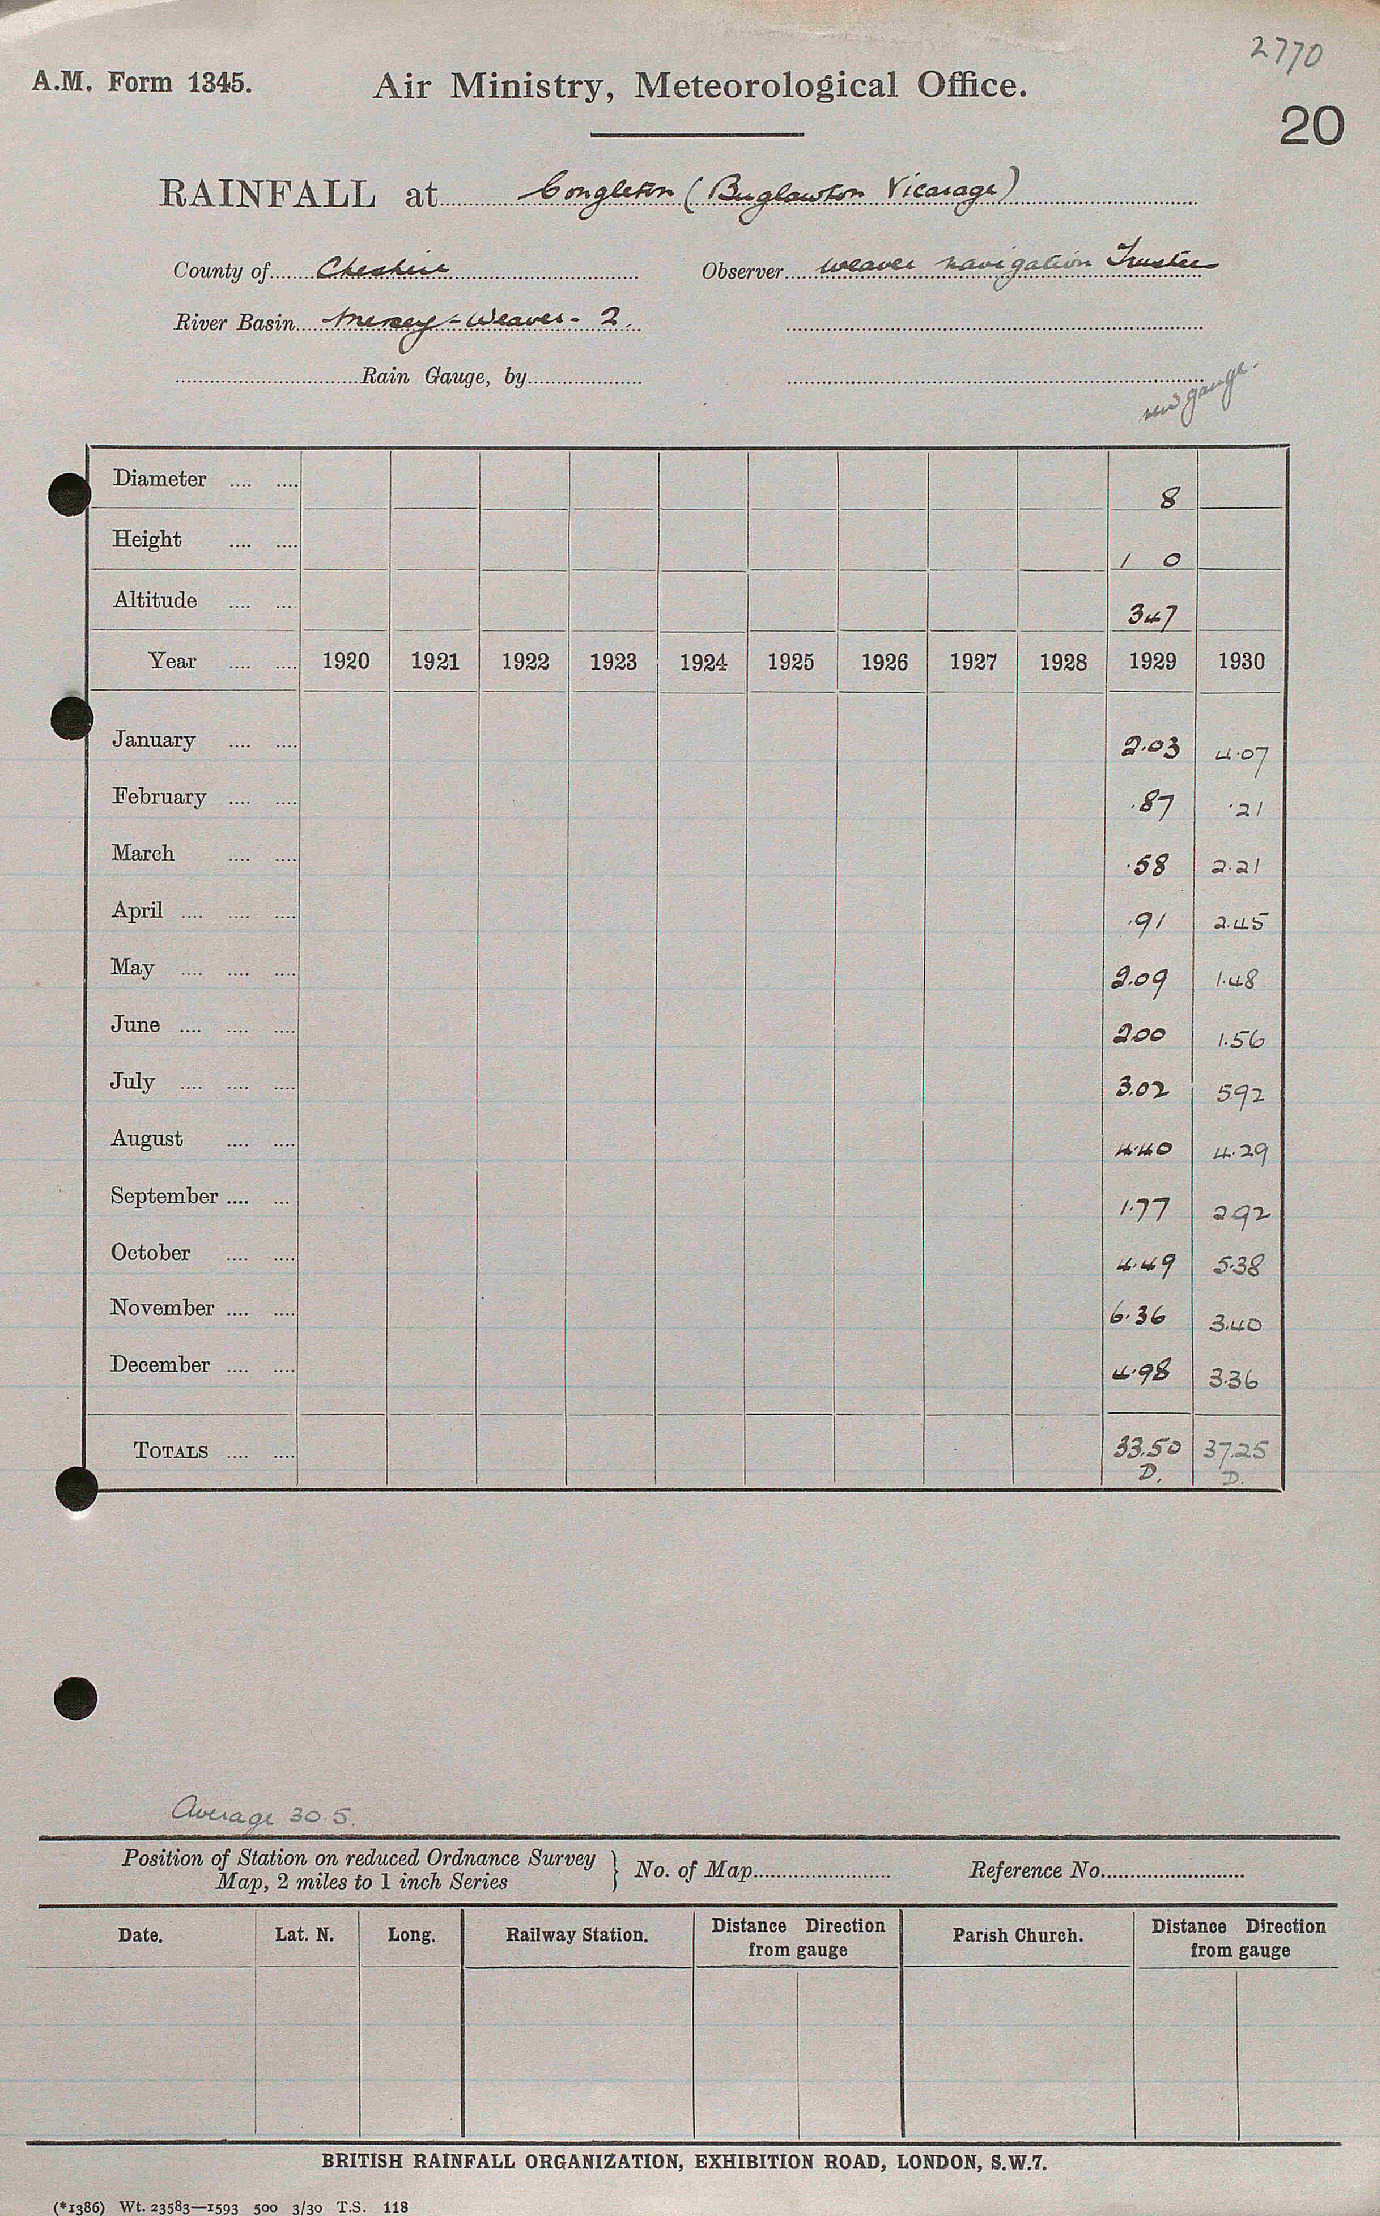 2770
A.M. Form 1345. Air Ministry, Meteorological Office.
20
RAINFALL at Congleton (Buglawton Vicarage)
County of Cheshire Observer Weaver Navigation Trustees
River Basin Mersey - Weaver - 2.
Rain Gauge, by
new gauge.
Diameter .... .... 8
Height .... .... 1 0
Altitude .... .... 347
Year .... .... 1920 1921 1922 1923 1924 1925 1926 1927 1928 1929 1930
January .... .... 2.03 4.07
February .... .... .87 .21
March .... .... .58 2.21
April .... .... .... .91 2.45
May .... .... .... 2.09 1.48
June .... .... .... 2.00 1.56
July .... .... .... 3.02 5.92
August .... .... 4.40 4.29
September .... .... 1.77 2.92
October .... .... 4.49 5.38
November .... .... 6.36 3.40
December .... .... 4.98 3.36
TOTALS .... .... 33.50 37.25
D. D.
Average 30.5.
Position of Station on reduced Ordnance Survey Map, 2 miles to 1 inch Series } No. of Map Reference No.
Date. Lat. N. Long. Railway Station. Distance Direction from gauge Parish Church. Distance Direction from gauge
BRITISH RAINFALL ORGANIZATION, EXHIBITION ROAD, LONDON, S.W.7.
(*1386) Wt. 23583—1593 500 3/30 T.S. 118